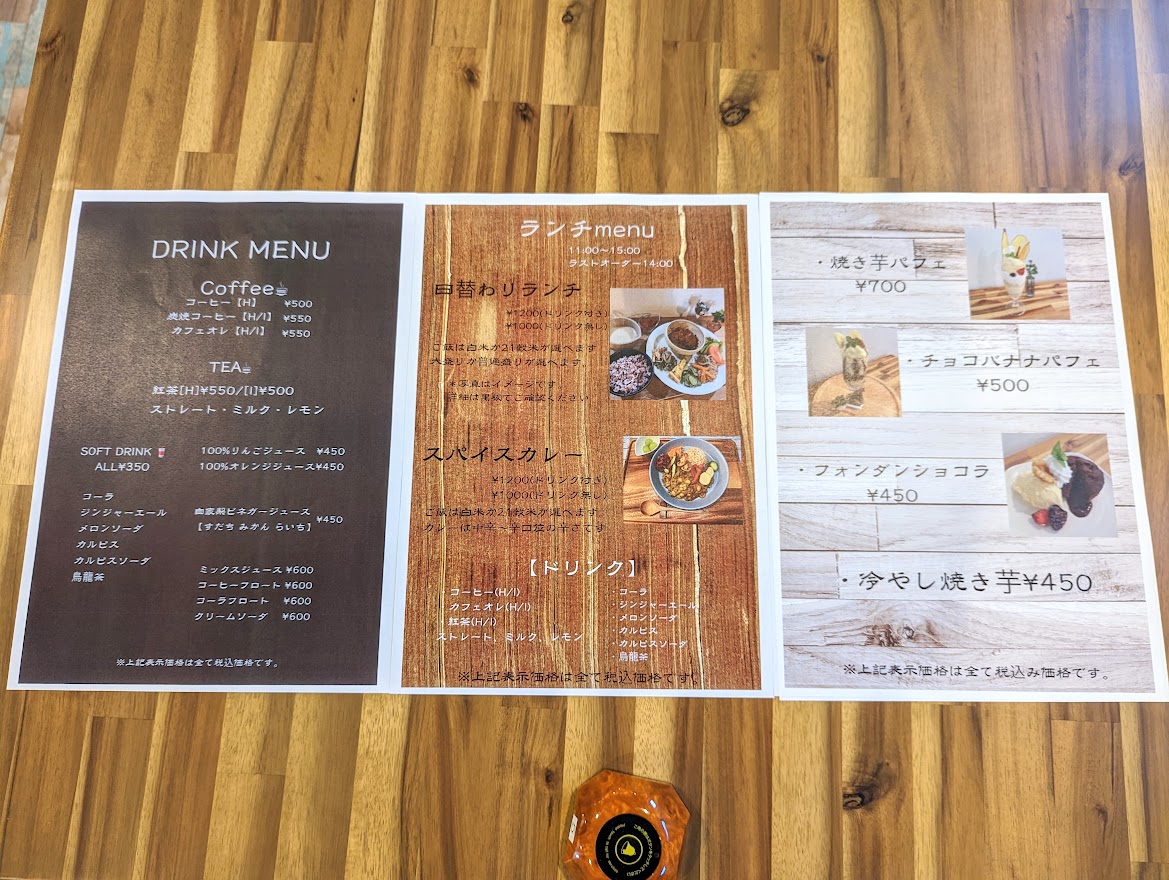 DRINK MENU
Coffee
コーヒー【H】 ¥500
炭焼コーヒー【H/I】 ¥550
カフェオレ【H/I】 ¥550
TEA
紅茶[H]¥550/[I]¥500
ストレート・ミルク・レモン
SOFT DRINK
ALL¥350
コーラ
ジンジャーエール
メロンソーダ
カルピス
カルピスソーダ
烏龍茶
100%りんごジュース ¥450
100%オレンジジュース¥450
自家製ビネガージュース
【すだち みかん らいち】 ¥450
ミックスジュース ¥600
コーヒーフロート ¥600
コーラフロート ¥600
クリームソーダ ¥600
※上記表示価格は全て税込価格です。
ランチmenu
11:00~15:00
ラストオーダー14:00
日替わりランチ
¥1200(ドリンク付き)
¥1000(ドリンク無し)
ご飯は白米か21穀米が選べます
大盛りか普通盛りが選べます。
※写真はイメージです。
詳細は黒板でご確認ください
スパイスカレー
¥1200(ドリンク付き)
¥1000(ドリンク無し)
ご飯は白米か21穀米が選べます
カレーは中辛~辛口位の辛さです
【ドリンク】
・コーヒー(H/I)
・カフェオレ(H/I)
・紅茶(H/I)
ストレート、ミルク、レモン
・コーラ
・ジンジャーエール
・メロンソーダ
・カルピス
・カルピスソーダ
・烏龍茶
※上記表示価格は全て税込価格です。
・焼き芋パフェ
¥700
・チョコバナナパフェ
¥500
・フォンダンショコラ
¥450
・冷やし焼き芋¥450
※上記表示価格は全て税込み価格です。